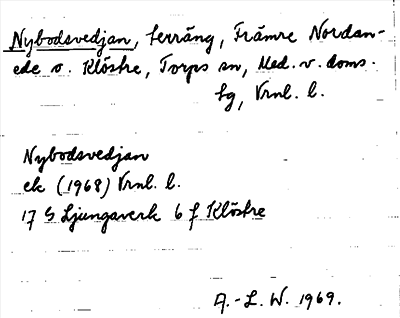 Nybodsvedjan, terräng, Främre Nordan-
ede o. Klöstre, Torps sn, Med. v. doms.
sg, Vrnl. l.
Nybodsvedjan
ek (1968) Vrnl. l.
17 G Ljungaverk 6 f Klöstre
A.-L. W. 1969.